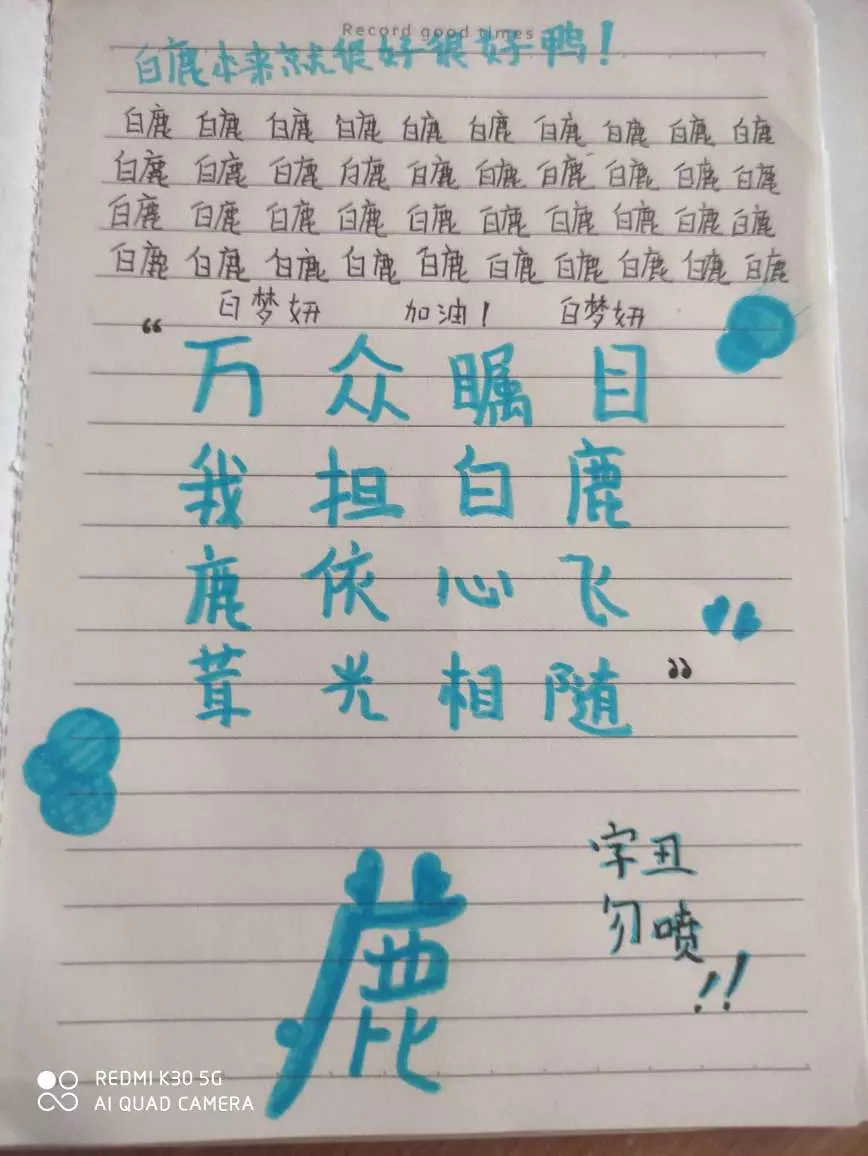 Record good times
白鹿本来就很好很好鸭！
白鹿 白鹿 白鹿 白鹿 白鹿 白鹿 白鹿 白鹿 白鹿 白鹿
白鹿 白鹿 白鹿 白鹿 白鹿 白鹿 白鹿 白鹿 白鹿 白鹿
白鹿 白鹿 白鹿 白鹿 白鹿 白鹿 白鹿 白鹿 白鹿 白鹿
白鹿 白鹿 白鹿 白鹿 白鹿 白鹿 白鹿 白鹿 白鹿 白鹿
白梦妍 加油！ 白梦妍
“万众瞩目
我担白鹿
鹿依心飞
茸光相随”
字丑
勿喷!!
鹿
REDMI K30 5G
AI QUAD CAMERA